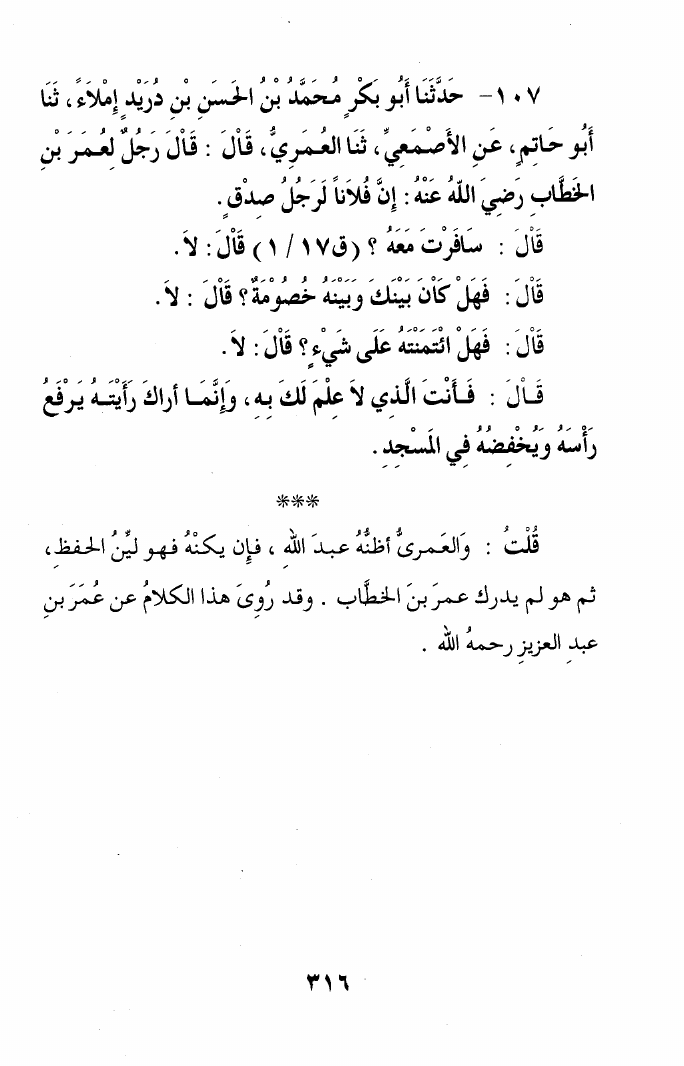 ١٠٧- حَدَّثَنَا أَبُو بَكْرٍ مُحَمَّدُ بْنُ الحَسَنِ بْنِ دُرَيْدٍ إِمْلاَءً، ثَنَا
أَبُو حَاتِمٍ، عَنِ الأَصْمَعِيِّ، ثَنَا العُمَرِيُّ، قَالَ : قَالَ رَجُلٌ لِعُمَرَ بْنِ
الخَطَّابِ رَضِيَ اللّهُ عَنْهُ: إِنَّ فُلاَناً لَرَجُلُ صِدْقٍ.
قَالَ : سَافَرْتَ مَعَهُ ؟ (ق١٧ / ١) قَالَ: لاَ.
قَالَ: فَهَلْ كَانَ بَيْنَكَ وَبَيْنَهُ خُصُوْمَةٌ؟ قَالَ : لاَ.
قَالَ: فَهَلْ ائْتَمَنْتَهُ عَلَى شَيْءٍ؟ قَالَ: لاَ.
قَالَ : فَأَنْتَ الَّذِي لاَ عِلْمَ لَكَ بِهِ، وَإِنَّمَا أراكَ رَأَيْتَهُ يَرْفَعُ
رَأْسَهُ وَيُخْفِضُهُ فِي المَسْجِدِ.
***
قُلْتُ : وَالعَمرىُّ أظنُّهُ عبدَ اللهِ ، فإن يكنْهُ فهو ليِّنُ الحفظِ،
ثم هو لم يدرك عمرَ بنَ الخطَّاب . وقد رُوِىَ هذا الكلامُ عن عُمَرَ بنِ
عبدِ العزيزِ رحمهُ الله .
٣١٦